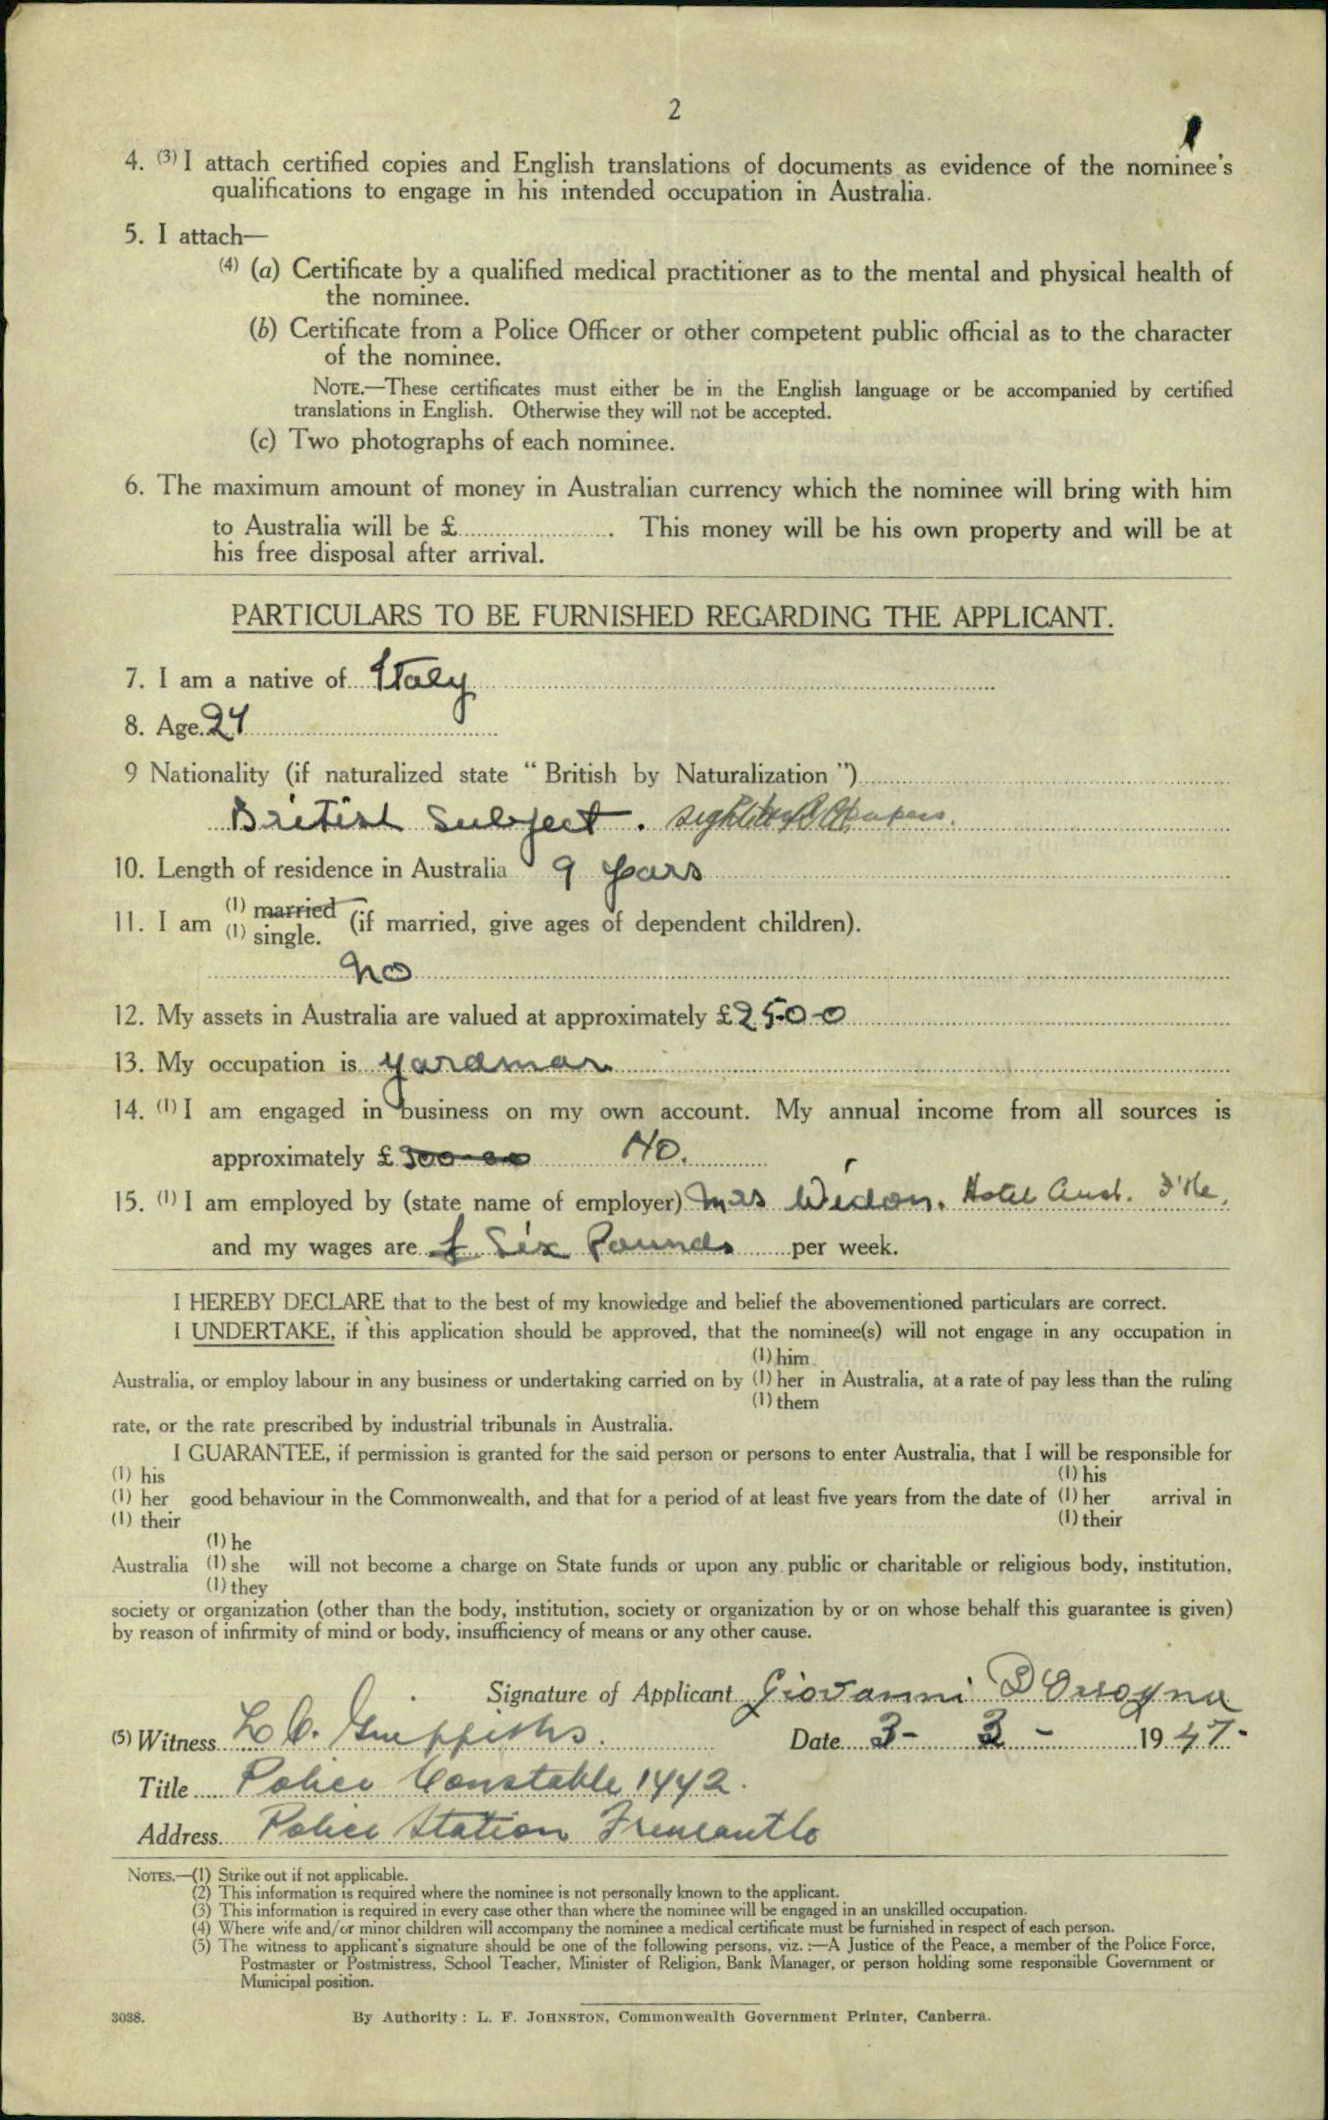 2
4. (3) I attach certified copies and English translations of documents as evidence of the nominee's
qualifications to engage in his intended occupation in Australia.
5. I attach—
(4) (a) Certificate by a qualified medical practitioner as to the mental and physical health of
the nominee.
(b) Certificate from a Police Officer or other competent public official as to the character
of the nominee.
NOTE.—These certificates must either be in the English language or be accompanied by certified
translations in English. Otherwise they will not be accepted.
(c) Two photographs of each nominee.
6. The maximum amount of money in Australian currency which the nominee will bring with him
to Australia will be £.......................... This money will be his own property and will be at
his free disposal after arrival.
PARTICULARS TO BE FURNISHED REGARDING THE APPLICANT.
7. I am a native of Italy
8. Age 24
9 Nationality (if naturalized state "British by Naturalization")
British Subject. papers.
10. Length of residence in Australia 9 years
11. I am (1) married (1) single. (if married, give ages of dependent children).
No
12. My assets in Australia are valued at approximately £250-0-0
13. My occupation is yardman
14. (1) I am engaged in business on my own account. My annual income from all sources is
approximately £300-00 NO.
15. (1) I am employed by (state name of employer) Mrs Widon. Hotel Aust. F'tle,
and my wages are £ Six Pounds per week.
I HEREBY DECLARE that to the best of my knowledge and belief the abovementioned particulars are correct.
I UNDERTAKE, if this application should be approved, that the nominee(s) will not engage in any occupation in
(1) him
Australia, or employ labour in any business or undertaking carried on by (1) her in Australia, at a rate of pay less than the ruling
(1) them
rate, or the rate prescribed by industrial tribunals in Australia.
I GUARANTEE, if permission is granted for the said person or persons to enter Australia, that I will be responsible for
(1) his (1) his
(1) her good behaviour in the Commonwealth, and that for a period of at least five years from the date of (1) her arrival in
(1) their (1) their
(1) he
Australia (1) she will not become a charge on State funds or upon any public or charitable or religious body, institution,
(1) they
society or organization (other than the body, institution, society or organization by or on whose behalf this guarantee is given)
by reason of infirmity of mind or body, insufficiency of means or any other cause.
Signature of Applicant Giovanni D'Orsogna
(5) Witness L C. Griffiths. Date 3- 3- 1947.
Title Police Constable 1442.
Address Police Station Fremantle
NOTES.—(1) Strike out if not applicable.
(2) This information is required where the nominee is not personally known to the applicant.
(3) This information is required in every case other than where the nominee will be engaged in an unskilled occupation.
(4) Where wife and/or minor children will accompany the nominee a medical certificate must be furnished in respect of each person.
(5) The witness to applicant's signature should be one of the following persons, viz. :—A Justice of the Peace, a member of the Police Force,
Postmaster or Postmistress, School Teacher, Minister of Religion, Bank Manager, or person holding some responsible Government or
Municipal position.
3038. By Authority : L. F. JOHNSTON, Commonwealth Government Printer, Canberra.